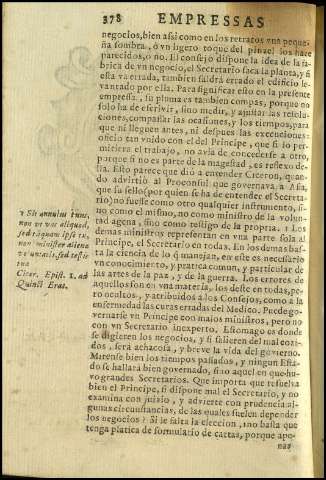 378 EMPRESSAS
negocios, bien assi como en los retratos vna peque-
ña sombra, ò vn ligero toque del pinzel los haze
parecidos, o no. El consejo dispone la idea de la fa-
brica de vn negocio, el Secretario saca la planta, y si
esta va errada, tambien saldrà errado el edificio le-
vantado por ella. Para significar esto en la presente
empressa, su pluma es tambien compas, porque no
solo ha de escrivir, sino medir, y ajustar las resolu-
ciones, compassar las ocasiones, y los tiempos, para
que ni lleguen antes, ni despues las execuciones:
oficio tan vnido con el del Principe, que si lo per-
mitiera el trabajo, no avia de concederse a otro,
porque si no es parte de la magestad, es reflexo de-
lla. Esto parece que diò a entender Ciceron, quan-
do advirtiò al Proconsul que governava a Asia,
que su sello (por quien se ha de entender el Secreta-
rio) no fuesse como otro qualquier instrumento, si-
no como el mismo, no como ministro de la volun-
tad agena, sino como testigo de la propria. 1 Los
demas ministros representan en vna parte sola al
Principe, el Secretario en todas. En los demas bas-
ta la ciencia de lo q̃ manejan, en este es necessario
vn conocimiento, y pratica comun, y particular de
las artes de la paz, y de la guerra. Los errores de
aquellos son en vna materia, los deste en todas, pe-
ro ocultos, y atribuidos a los Consejos, como a la
enfermedad las curas erradas del Medico. Puede go-
vernarse vn Principe con malos ministros, pero no
con vn Secretario inexperto. Estomago es donde
se digieren los negocios, y si salieren del mal cozi-
dos, serà achacosa, y breve la vida del govierno.
Mirense bien los tiempos passados, y ningun Esta-
do se hallarà bien governado, sino aquel en que hu-
vo grandes Secretarios. Que importa que resuelva
bien el Principe, si dispone mal el Secretario, y no
examina con juizio, y advierte con prudencia al-
gunas circunstancias, de las quales suelen depender
los negocios? Si le falta la eleccion, no basta que
tenga platica de formulario de cartas, porque apo-
nas
1 Sit annulus tuus,
non vt vas aliquod,
sed tãquam ipse tu,
non minister alienæ
voluntatis, sed testis
tuæ
Cicer. Epist. 1. ad
Quinct. Frat.